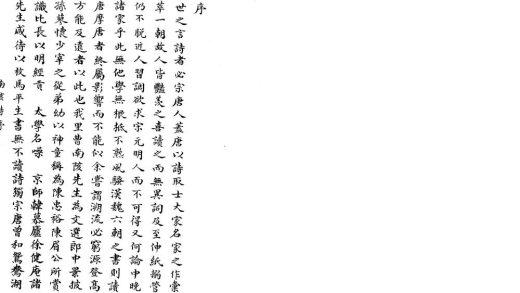 序
世之言詩者必宗唐人蓋唐以詩取士大家名家之作彙
萃一朝故人皆豔羨之喜讀之而無異詞及至伸紙搦管
仍不脫近人習調欲求宗元明人而不可得又何論中晚
諸家乎此無他學無根柢不熟風騷漢魏六朝之書則讀
唐摩唐者終屬影響而不能似余嘗謂溯流必窮源登高
方能及遠者以此也我里曹南陔先生為文選郎中景披
孫慕懷少宰之從弟幼以神童稱為陳忠裕陳眉公所賞
識比長以明經貢 太學名噪 京師韓慕廬徐健庵諸
先生咸待以枚馬平生書無不讀詩獨宗唐曾和鴛鴦湖